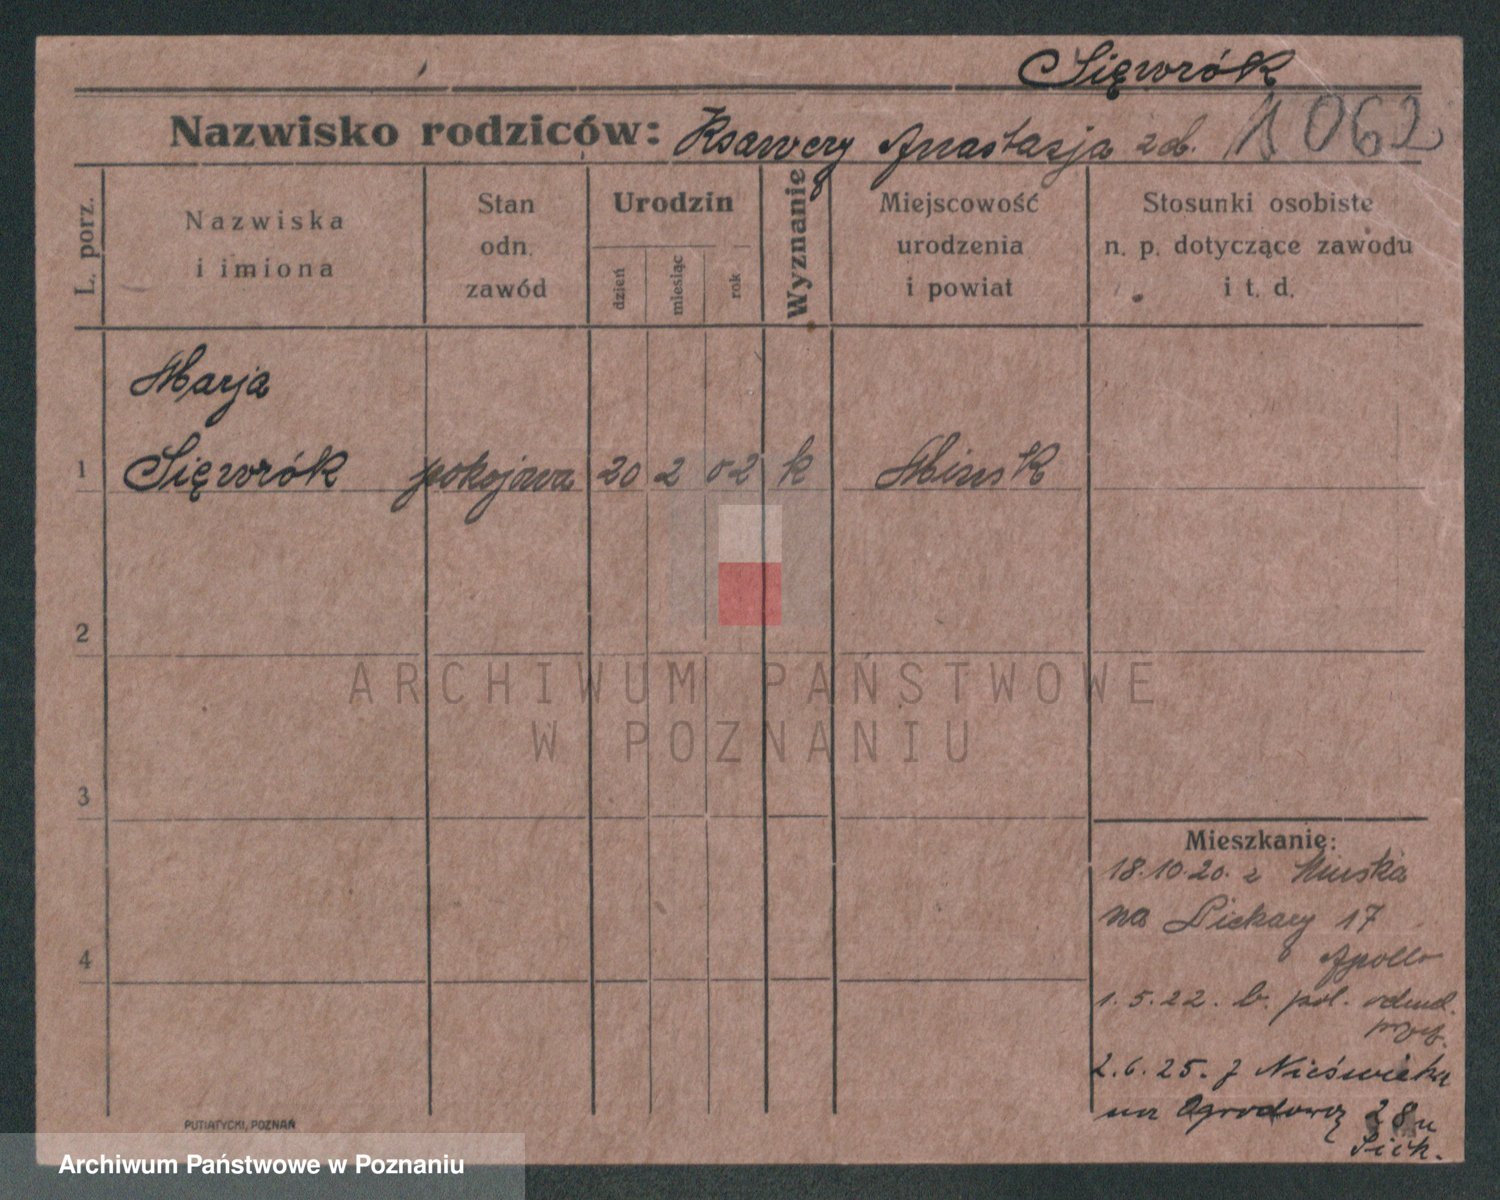 Sięwrók
Nazwisko rodziców: Ksawery Anastazja zd. 1062
L. porz.
Nazwiska
i imiona
Stan
odn.
zawód
Urodzin
dzień
miesiąc
rok
Wyznanie
Miejscowość
urodzenia
i powiat
Stosunki osobiste
n. p. dotyczące zawodu
i t. d.
Marja
1 Sięwrók pokojowa 20 2 02 k Minsk
2
ARCHIWUM PAŃSTWOWE
W POZNANIU
3
Mieszkanie:
18.10.20. z Minska
na Piekary 17
4
Apollo
1.5.22. b. pol.
2.6.25. z Nieświeża
na Ogrodową 28 u
PUTIATYCKI, POZNAŃ
Archiwum Państwowe w Poznaniu